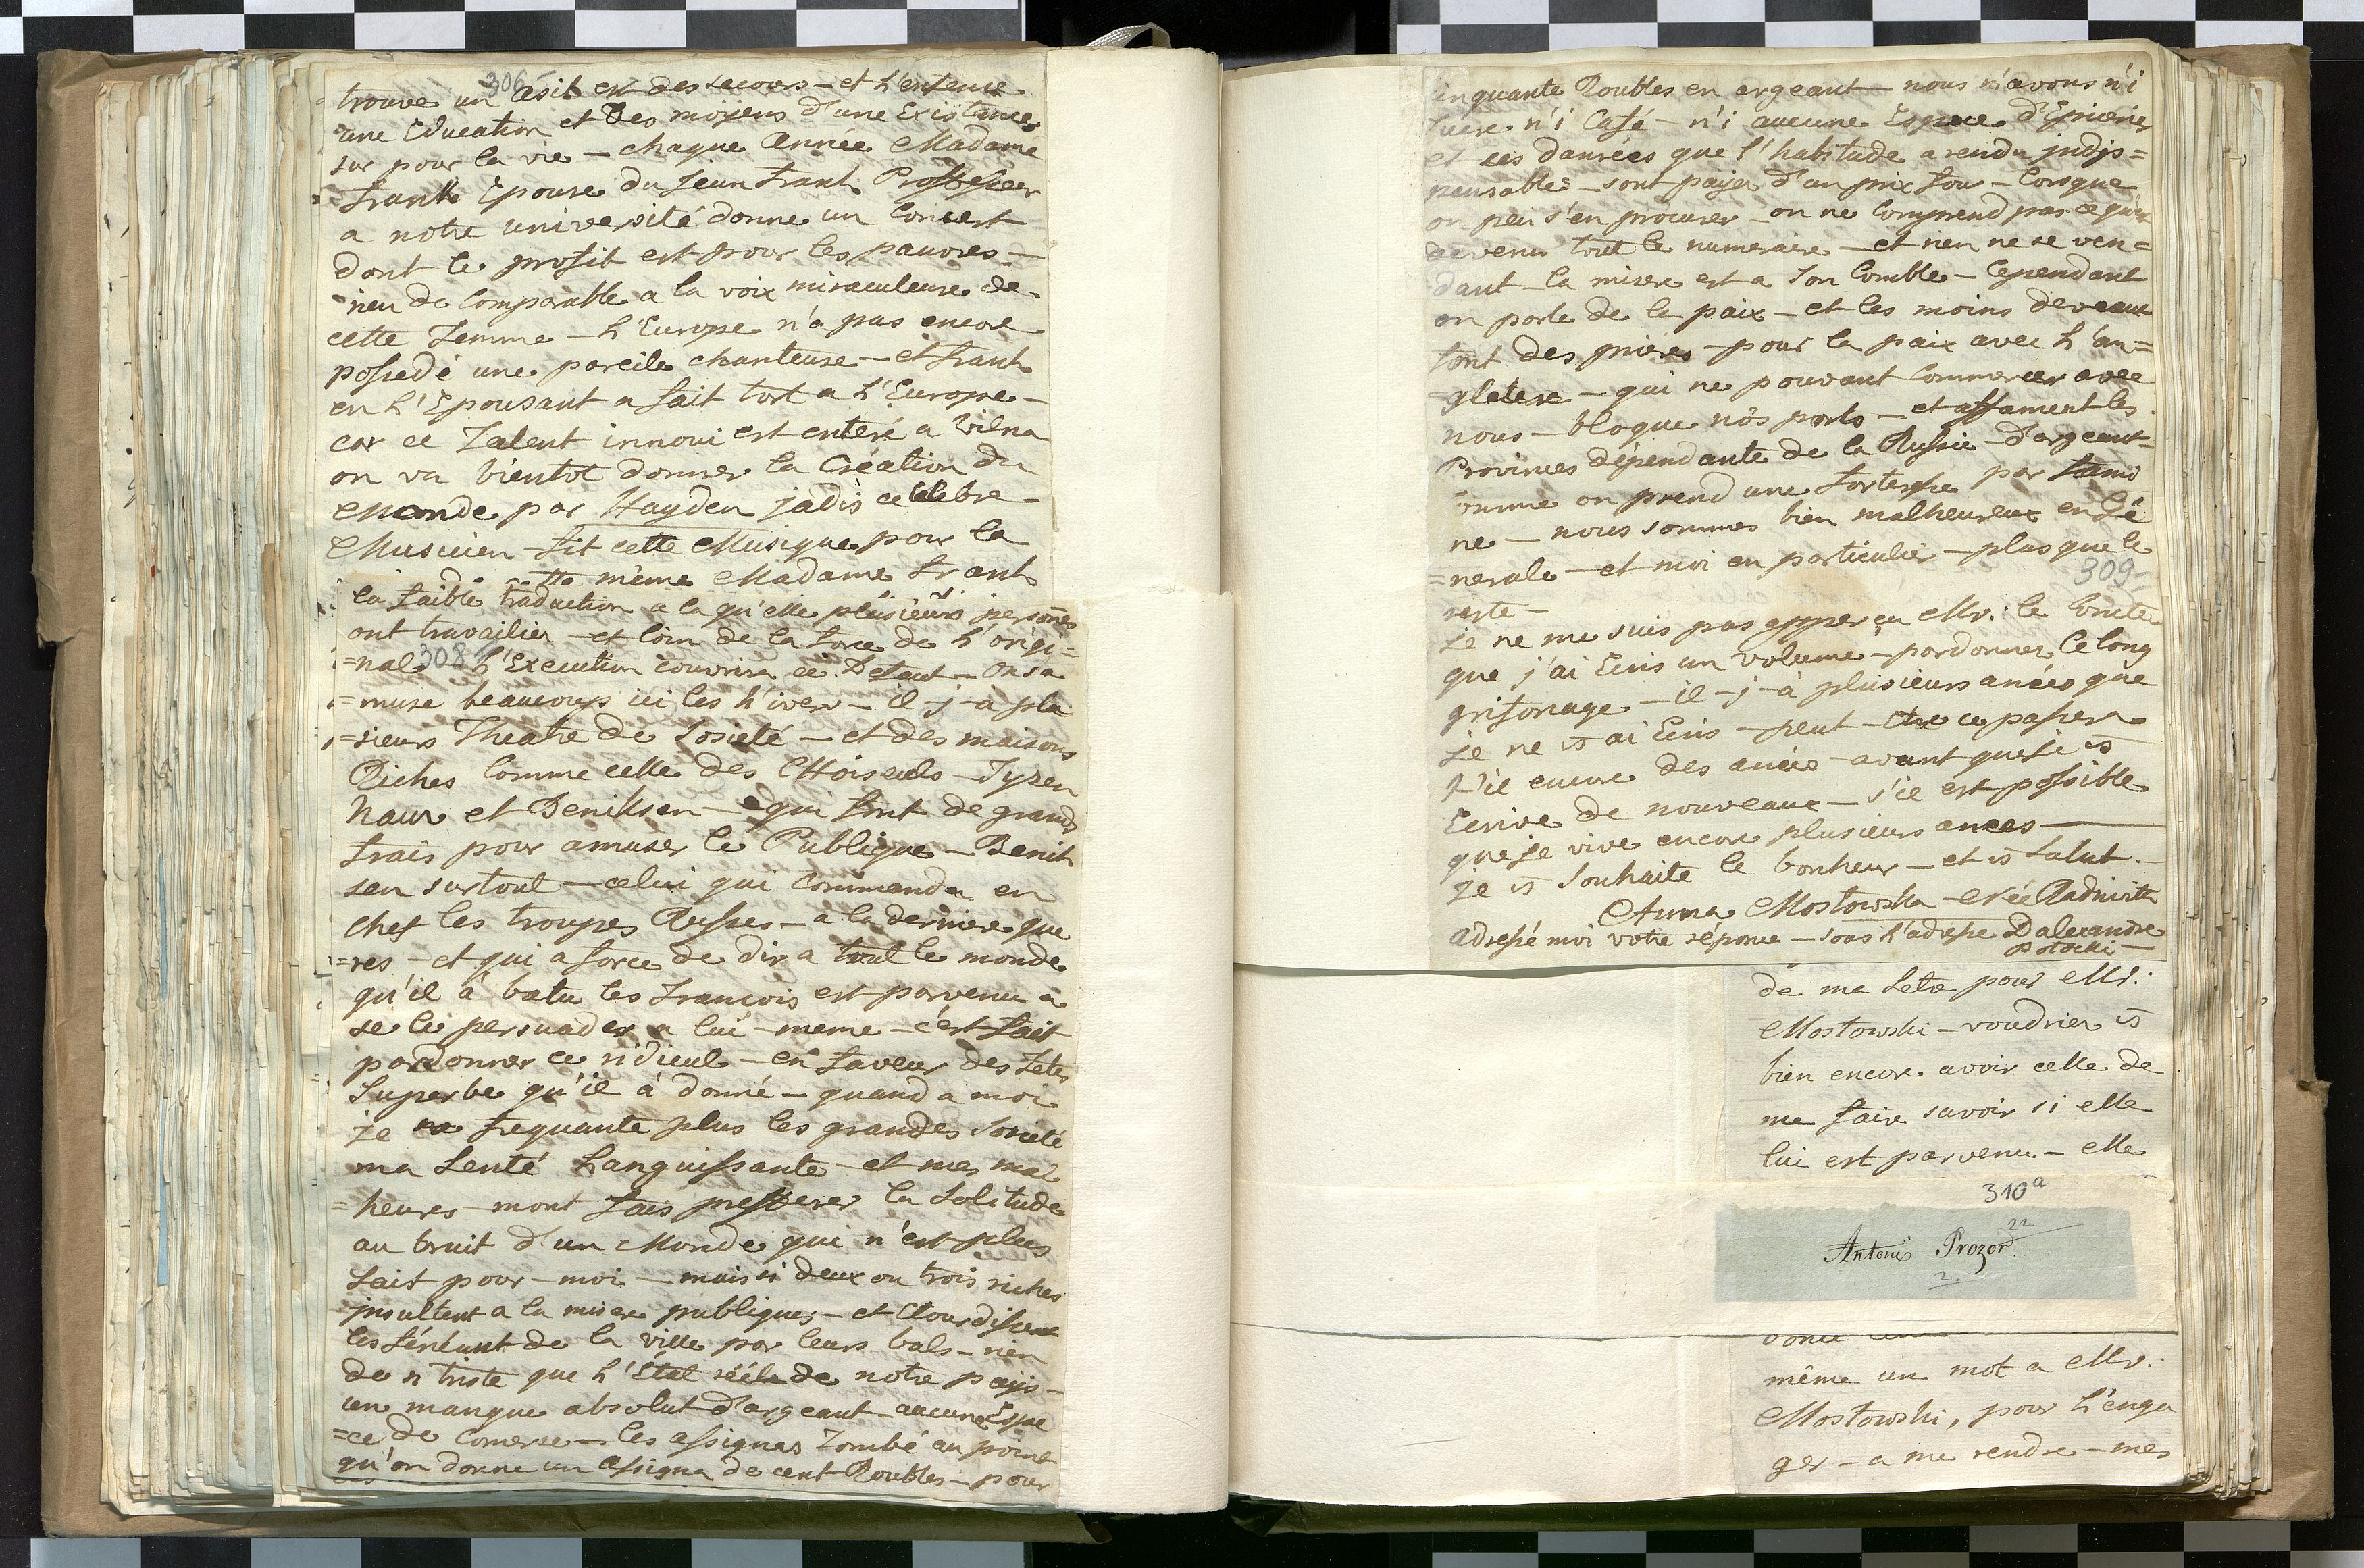 306
trouve un Asil est des secours – et l'enfence
une Education et des moyens d'une Existance
sur pour la vie – chaque Année Madame
frank Epouse du Jeun frank Proffesseur
a notre université donne un Concert
dont le profit est pour les pauvres –
rien de Comparable a la voix miraculeuse de
cette femme – l'Europe n'a pas encore
possedé une pareile chanteuse – et frank
en l'Epousant a fait tort a l'Europe –
car ce Talent innoui est enteré a Vilna
on va bientot donner la Création du
Monde par Hayden jadis celebre
Musicien fit cette Musique pour la
même Madame frank
la faible traduction a la qu'elle plusieurs persones
ont travailier – et loin de la force de l'origi=
=nal 308 l'Execution couvrira ce Defaut – On sa
=muse beaucoup ici les h'ivers – il-j-a plu
=sieurs Theatre de Societé – et des maisons
Riches Comme celle des Choiseuls – Tyzen
haus et Beniksen – qui font de grands
frais pour amuser le Publique – Benik
sen surtout – celui qui commanda en
chef les troupes Russes – a la derniere gue
=res – et qui a force de dir a tout le monde
qu'il à batu les francois est parvenu a
se le persuader a lui-meme – c'est fait
pardonner ce ridicul – en faveur des fetes
Superbe qu'il à donné – quand a moi
je ne frequante plus les grandes Societé
ma senté Languissante – et mes mal
=heures – mont fais presferer la Solitude
au bruit d'un Monde qui n'est plus
fait pour-moi – mais si deux ou trois riches
jnsultent a la misere publiques – et Etourdissent
les fénéant de la ville par leurs bals – rien
de si triste que l'état réele de notre pays –
un manque absolut d'argeant – aucune Espe
=ce de Comerse – les assignas Tombé au point
qu'on donne un assigna de cent Roubles – pour
inquante Roubles en argeant – nous n'avons n'i
sucre n'i Café – n'i aucune Espece d'Epiceries
et ces danrées que l'habitude a rendu jndis=
pensable – sont payer d'un prix fou – lorsque
on peu s'en procurer – on ne Comprend pas ce qu'est
devenu tout le numeraire – et rien ne se ven=
dant la misere est a son Comble – Cependant
on parle de la paix – et les moins deveaux
font des prieres – pour la paix avec l'an=
=gletere – qui ne pouvant Commercer avec
nous – bloque nos ports – et affament les
Provinces dépendante de la Russie – d'argeant
comme on prend une forteresse par fami
ne – nous sommes bien malheureux en Gé
=nerale – et moi en particulier – plus que le
309
reste –
Je ne me suis pas apperçu Mr: le Comte
que j'ai Ecris un volume – pardonner ce long
grifonage – il-j-à plusieurs anées que
Je ne vs ai Ecris – peut-être ce passera
t'il encore des anées – avant que je vs
Ecrive de nouveaux – s'il est possible
que je vive encore plusieurs anees –
Je vs Souhaite le bonheur – et vs salut. –
Anna Mostowska Née Radziwiłł
Adressé moi votre réponse – sous l'adresse D'alexandre
Potocki –
de ma letre pour Mr:
Mostowski – voudrier vs
bien encore avoir celle de
me faire savoir si elle
lui est parvenu – elle
310a
22
Antoni Prozor.
2.
même un mot a Mr:
Mostowski, pour l'enga
ger – a me rendre – mes